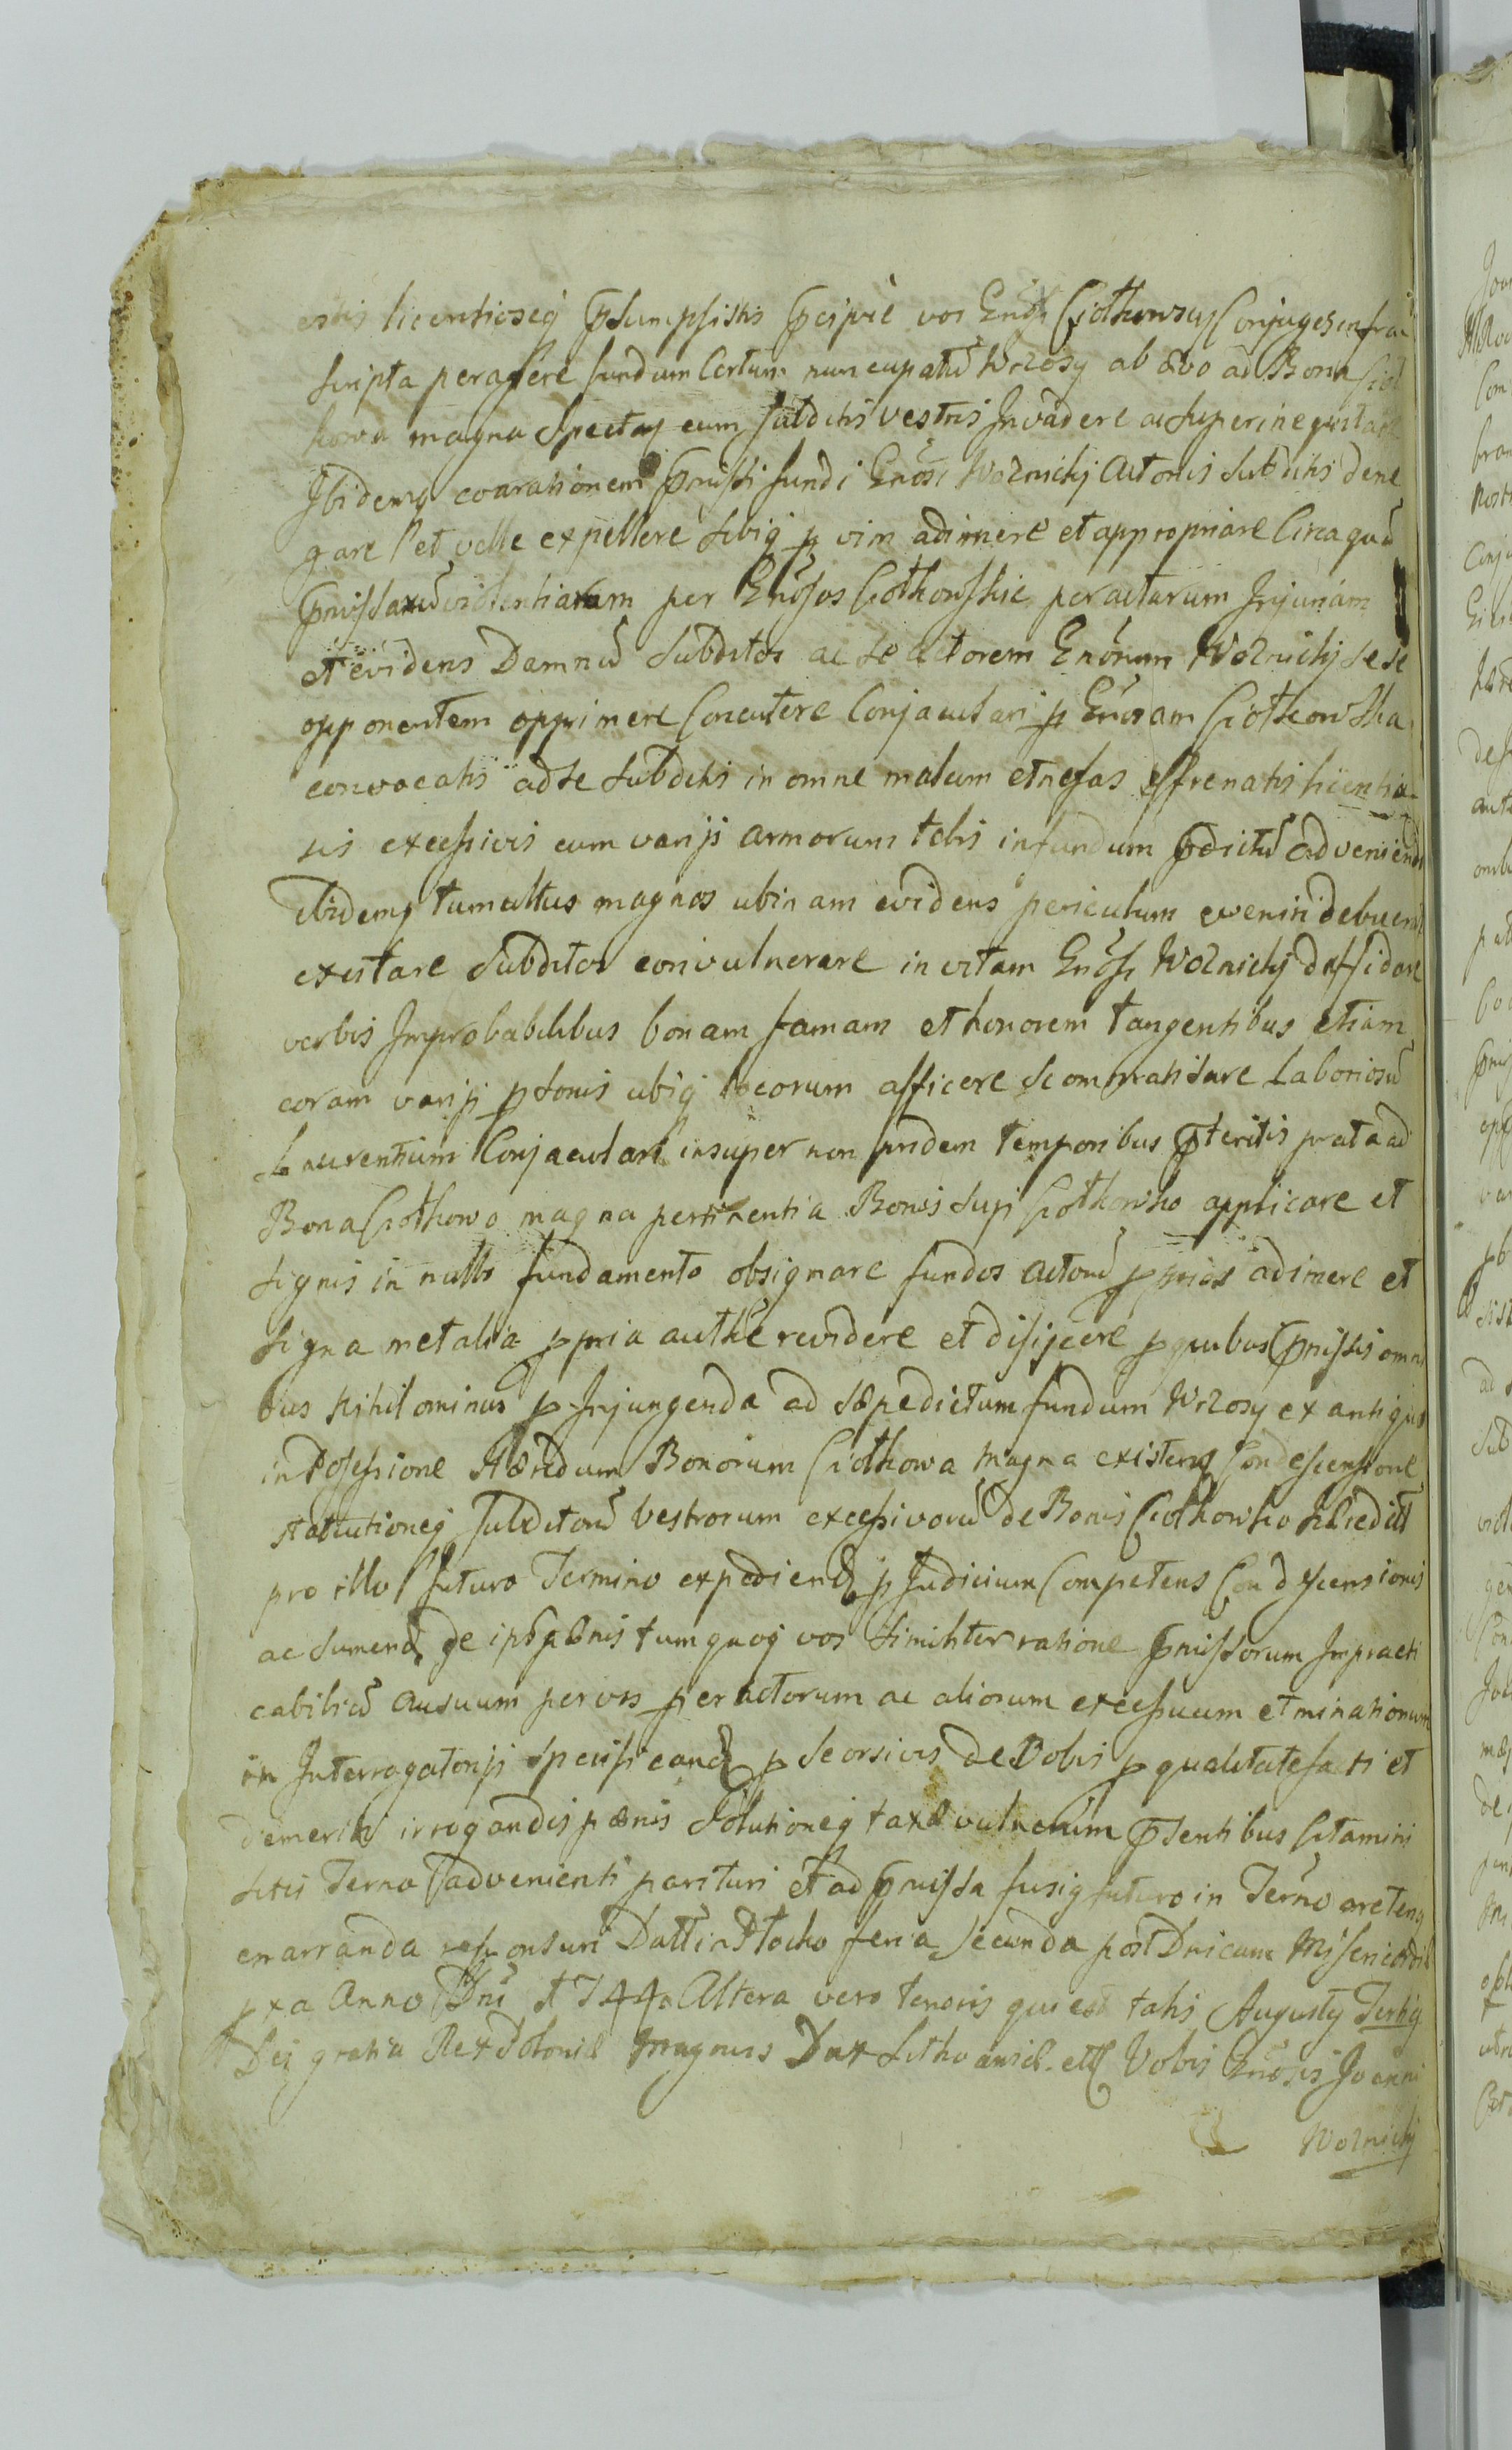 estis licentioseq̃ p̃sumpsistis p̃cipue vos Gñosi Ciołkowscy Conjuges infra
scripta peragere fundum Certum nuncupatũ Wrzosy ab ævo ad Bona Cioł
kowa magna Spectan̄ cum subditis vestris Invadere ac superinequitare
Ibidemq̃ coarationem p̃missi fundi Gñosi Woznicky Actoris Subditis dene
gare et velle expellere sibiq̃ p vim adimere et appropriare Circa quã
p̃missarũ violentiarum per Gñosos Ciołkowskie peractarum Injuriam
et evidens Damnũ Subditos ac se actorem Gñosum Woznicky sese
opponentem opprimere Concutere Conjaculari p Gñosam Ciołkowska
convocatis ad se subditis in omne malum et nefas effrenatis licentio-
sis excessivis cum varijs armorum telis in fundum p̃dictũ adveniendo
ibidemq̃ tumultus magnos ubi nam evidens periculum evenire debuerit
excitare Subditos convulnerare in vitam Gñosi Woznicky diffidare
verbis Improbabilibus bonam famam et honorem tangentibus etiam
coram varijs p̱sonis ubiq̃ locorum afficere Scommatisare Laboriosũ
Laurentium Conjaculari insuper non pridem temporibus p̃teritis prata ad
Bona Ciołkowo magna pertinentia Bonis suis Ciołkowko applicare et
signis in nullo fundamento obsignare fundos actorũ p̱prios adimere et
signa metalia p̱pria authẽ revidere et disijcere p quibus p̃missis omni
bus nihilominus p Injungenda ad sæpedictum fundum Wrzosy ex antiquo
in Possessione Hæredum Bonorum Ciołkowa magna existen̄ Condescensione
statutioneq̃ Subditorũ vestrorum excessivorũ de Bonis Ciołkowko
pro illo futuro Termino expediend p Judicium Competens Condescensionis
ac sumend de ipsis pænis tum quoq̃ vos similiter ratione p̃missorum Impracti
cabiliũ Ausuum per vos peractorum ac aliorum excessuum et minationum
in Interrogatorijs specificand p seorsivis de Vobis p qualitate facti et
demeriti irrogandis pænis Solutioneq̃ taxæ vulnerum p̃sentibus Citamini
sitis Terño advenienti parituri et ad p̃missa fusiq̃ futuro in Terño
enarranda responsuri Datt in Płocko feria secunda post Dñicam Misericordiæ
pxa Anno Dñi 1744o Altera vero tenoris qui est talis Augusty Tertiq̃
Dei gratia Rex Poloniæ Magnus Dux Lithvaniæ ett Vobis Gñosis Joanni
Woznicky